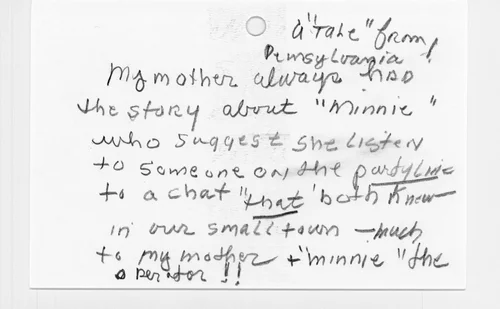 a "Tale" from
Pennsylvania!
My mother always had
the story about "Minnie"
who suggest she listen
to someone on the partyline
to a chat "that" both knew
in our small town - much
to my mother + "minnie" the
operator!!